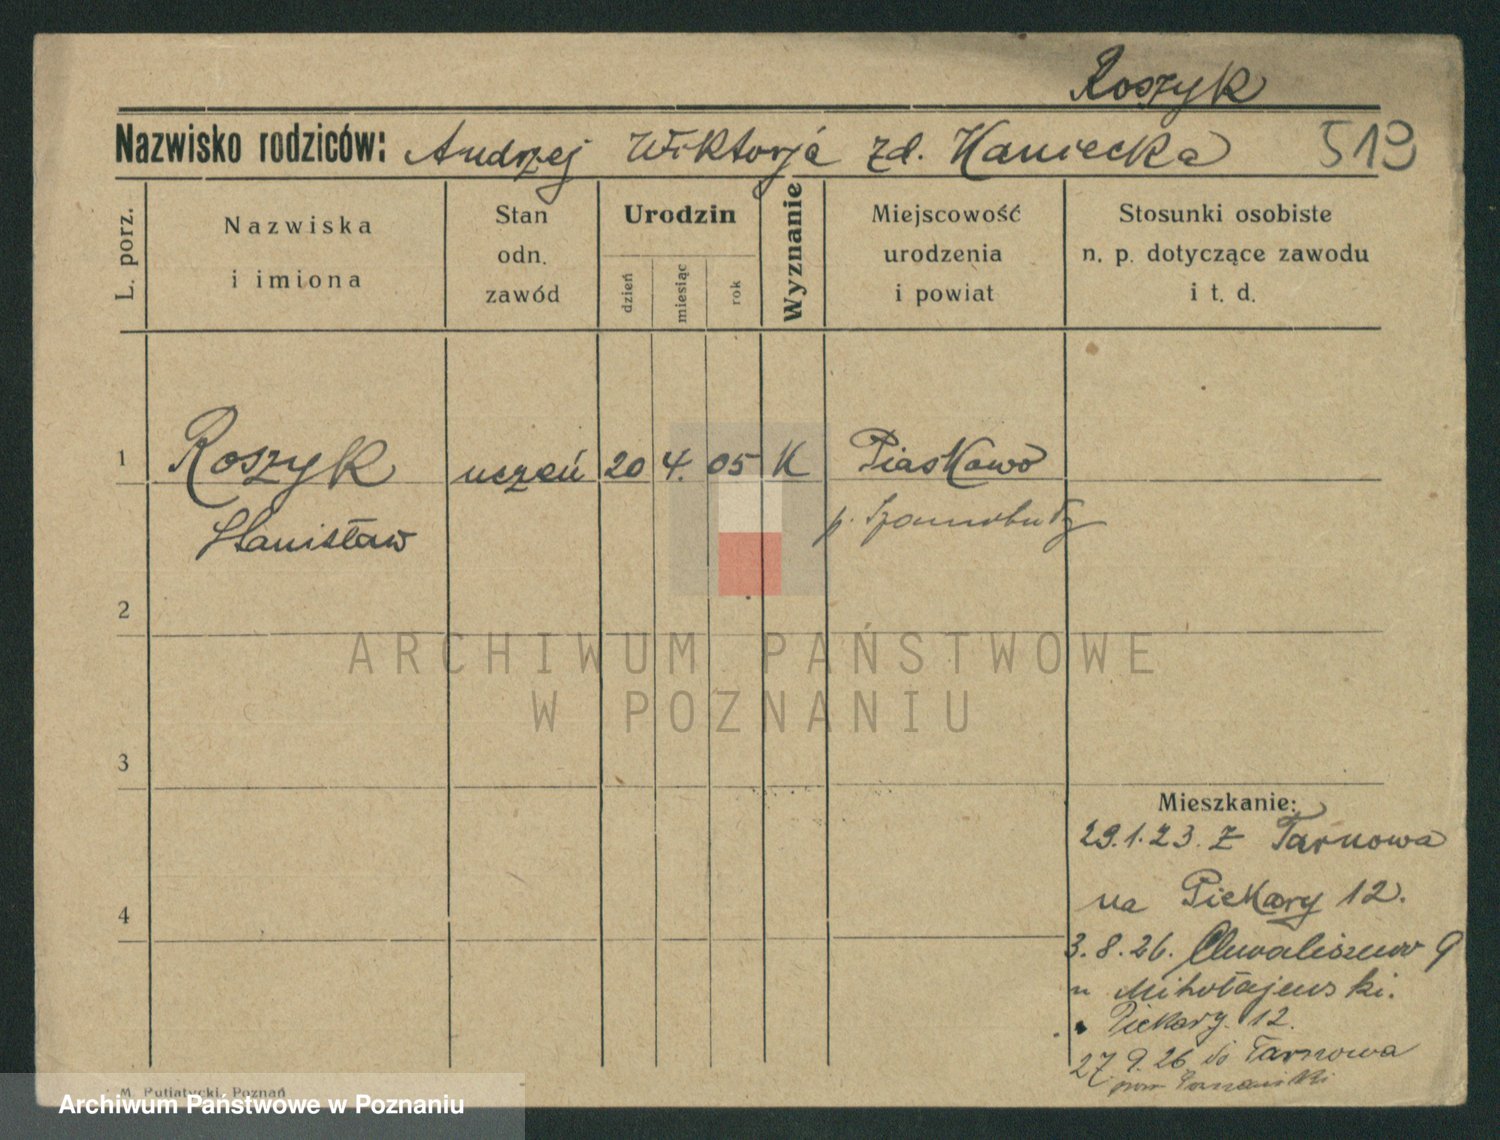 Roszyk
Nazwisko rodziców: Andrzej Wiktorja zd. Kaniecka 519
L. porz.
Nazwiska
i imiona
Stan
odn.
zawód
Urodzin
dzień
miesiąc
rok
Wyznanie
Miejscowość
urodzenia
i powiat
Stosunki osobiste
n. p. dotyczące zawodu
i t. d.
1 Roszyk uczeń 20 4. 05 K Piaskowo
Stanisław p. Szamotuły
2
ARCHIWUM PAŃSTWOWE
W POZNANIU
3
Mieszkanie:
29.1.23. z Tarnowa
na Piekary 12.
4
3.8.26. Chwaliszewo 9
u Mikołajewski.
Piekary 12.
27.9.26 do Tarnowa
pow
M. Putiatycki, Poznań
Archiwum Państwowe w Poznaniu